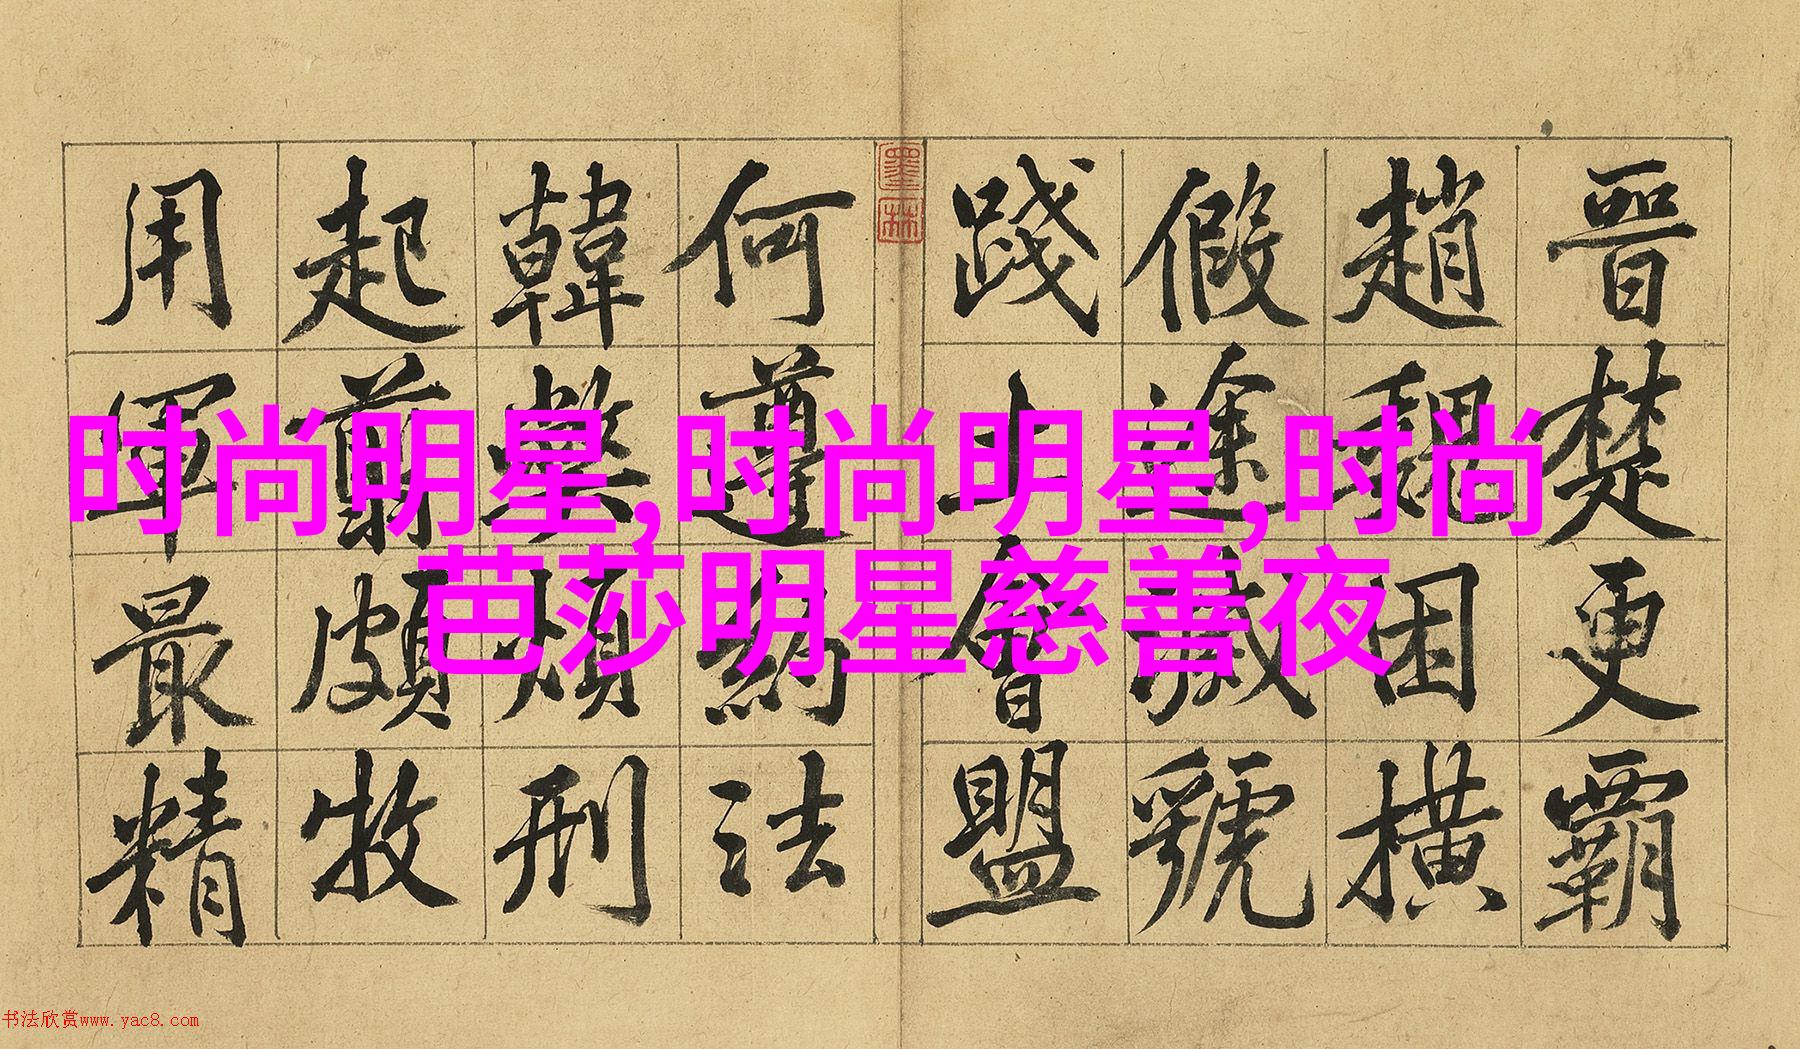 晉楚更霸
趙魏困橫
假途滅虢
踐土會盟
何遵約法
韓弊煩刑
起翦頗牧
用軍最精
墨林
时尚明星,时尚明星,时尚
芭莎明星慈善夜
书法欣赏www.yac8.com